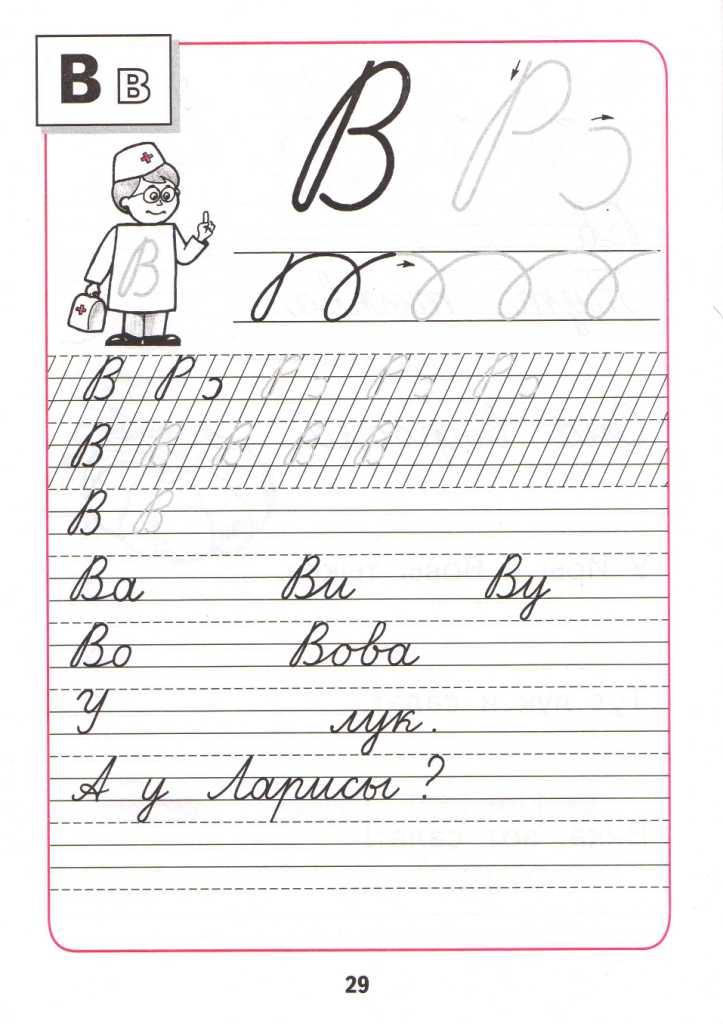 В в
В Р э
В
В Р э Р э Р э Р э
В В В В В
В В
Ва Ви Ву
Во Вова
У лук.
А у Ларисы?
29